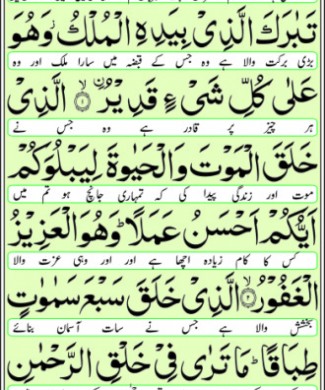 تَبٰرَكَ الَّذِیْ بِیَدِهِ الْمُلْكُ ز وَهُوَ
بڑی برکت والا ہے وہ جس کے قبضہ میں سارا ملک اور وہ
عَلٰی كُلِّ شَیْءٍ قَدِیْرُ ۙ۝۱ الَّذِیْ
ہر چیز پر قادر ہے وہ جس نے
خَلَقَ الْمَوْتَ وَالْحَیٰوةَ لِیَبْلُوَكُمْ
موت اور زندگی پیدا کی کہ تمہاری جانچ ہو تم میں
اَیُّكُمْ اَحْسَنُ عَمَلًا ؕ وَهُوَ الْعَزِیْزُ
کس کا کام زیادہ اچھا ہے اور وہی عزت والا
الْغَفُوْرُ ۙ۝۲ الَّذِیْ خَلَقَ سَبْعَ سَمٰوٰتٍ
بخشش والا ہے جس نے سات آسمان بنائے
طِبَاقًا ؕ مَا تَرٰی فِیْ خَلْقِ الرَّحْمٰنِ